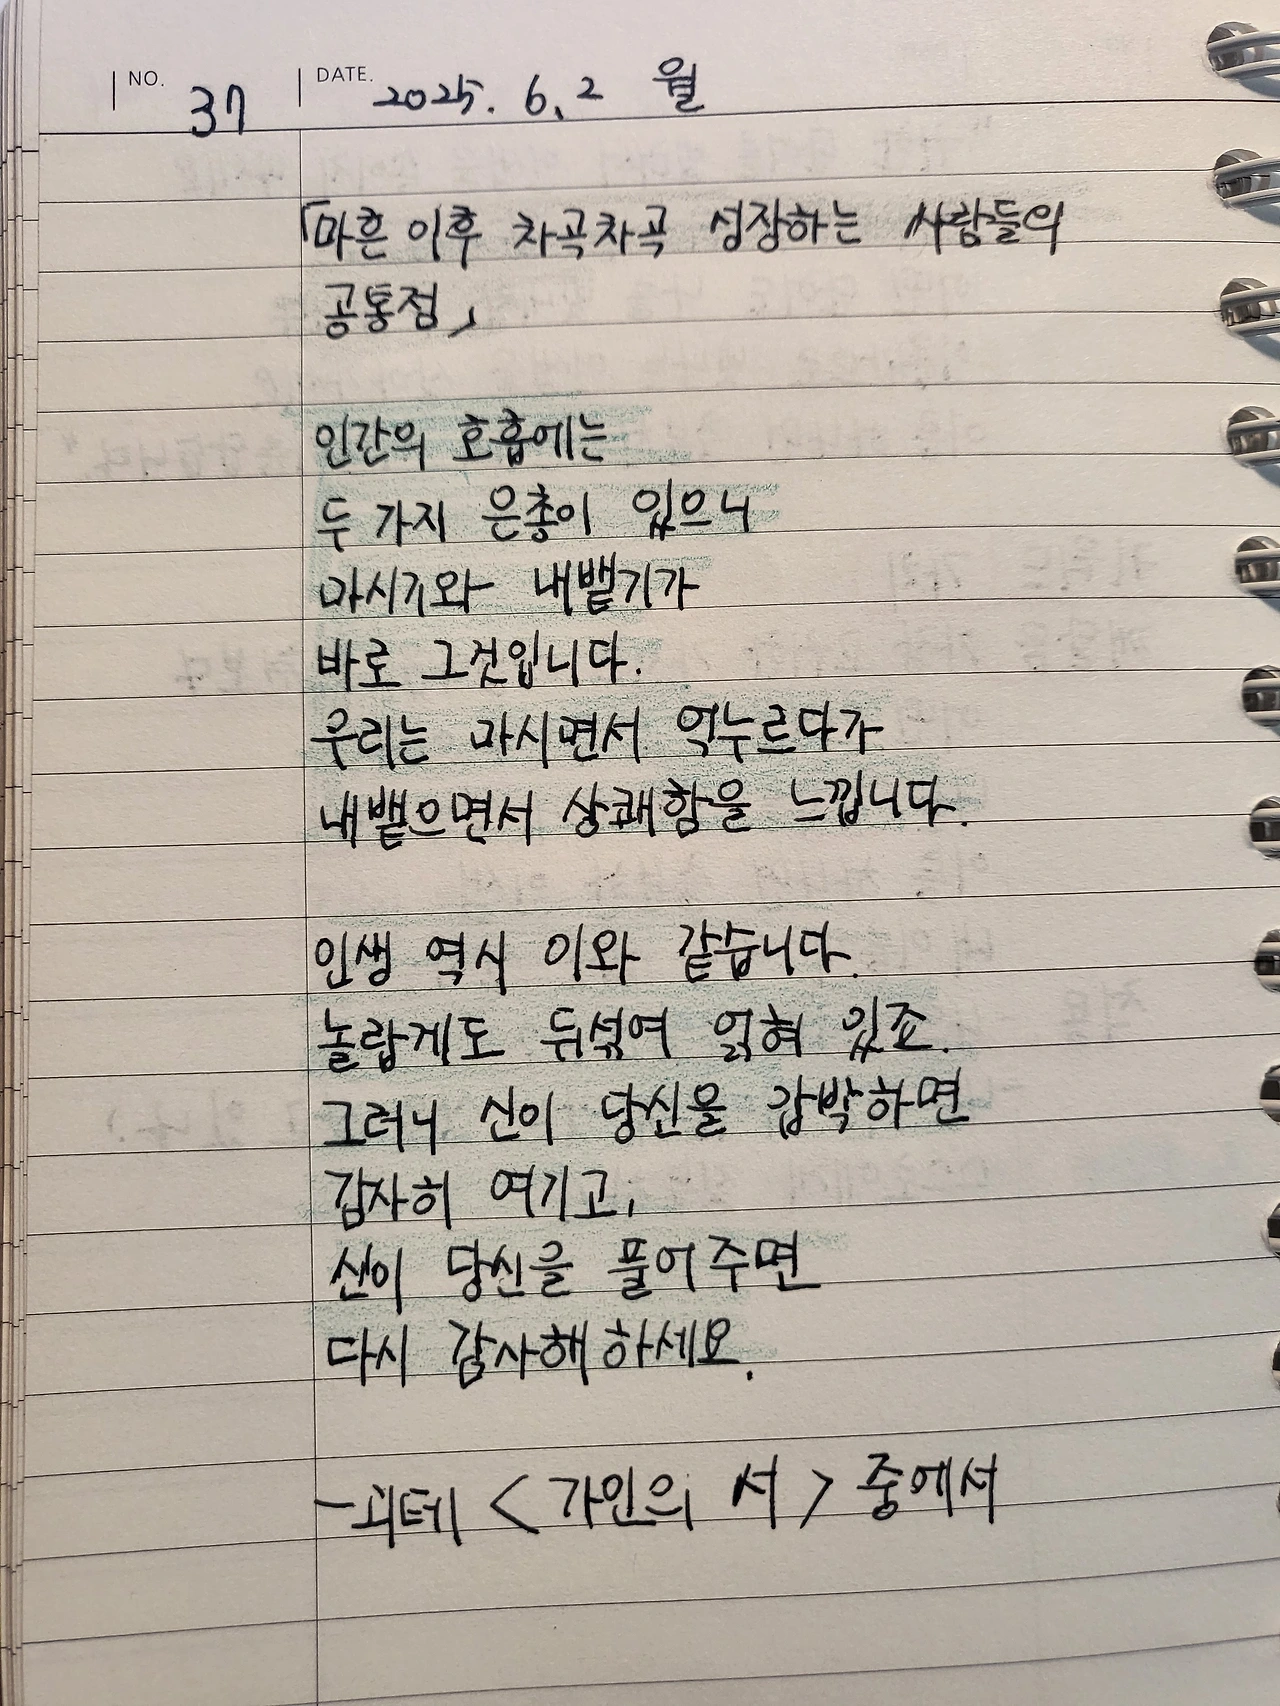 NO. 37 DATE. 2025. 6. 2 월
「마흔 이후 차곡차곡 성장하는 사람들의
공통점」
인간의 호흡에는
두 가지 은총이 있으니
마시기와 내뱉기가
바로 그것입니다.
우리는 마시면서 억누르다가
내뱉으면서 상쾌함을 느낍니다.
인생 역시 이와 같습니다.
놀랍게도 뒤섞여 얽혀 있죠.
그러니 신이 당신을 감박하면
감사히 여기고,
신이 당신을 풀어주면
다시 감사해 하세요.
- 괴테 < 가인의 서 > 중에서